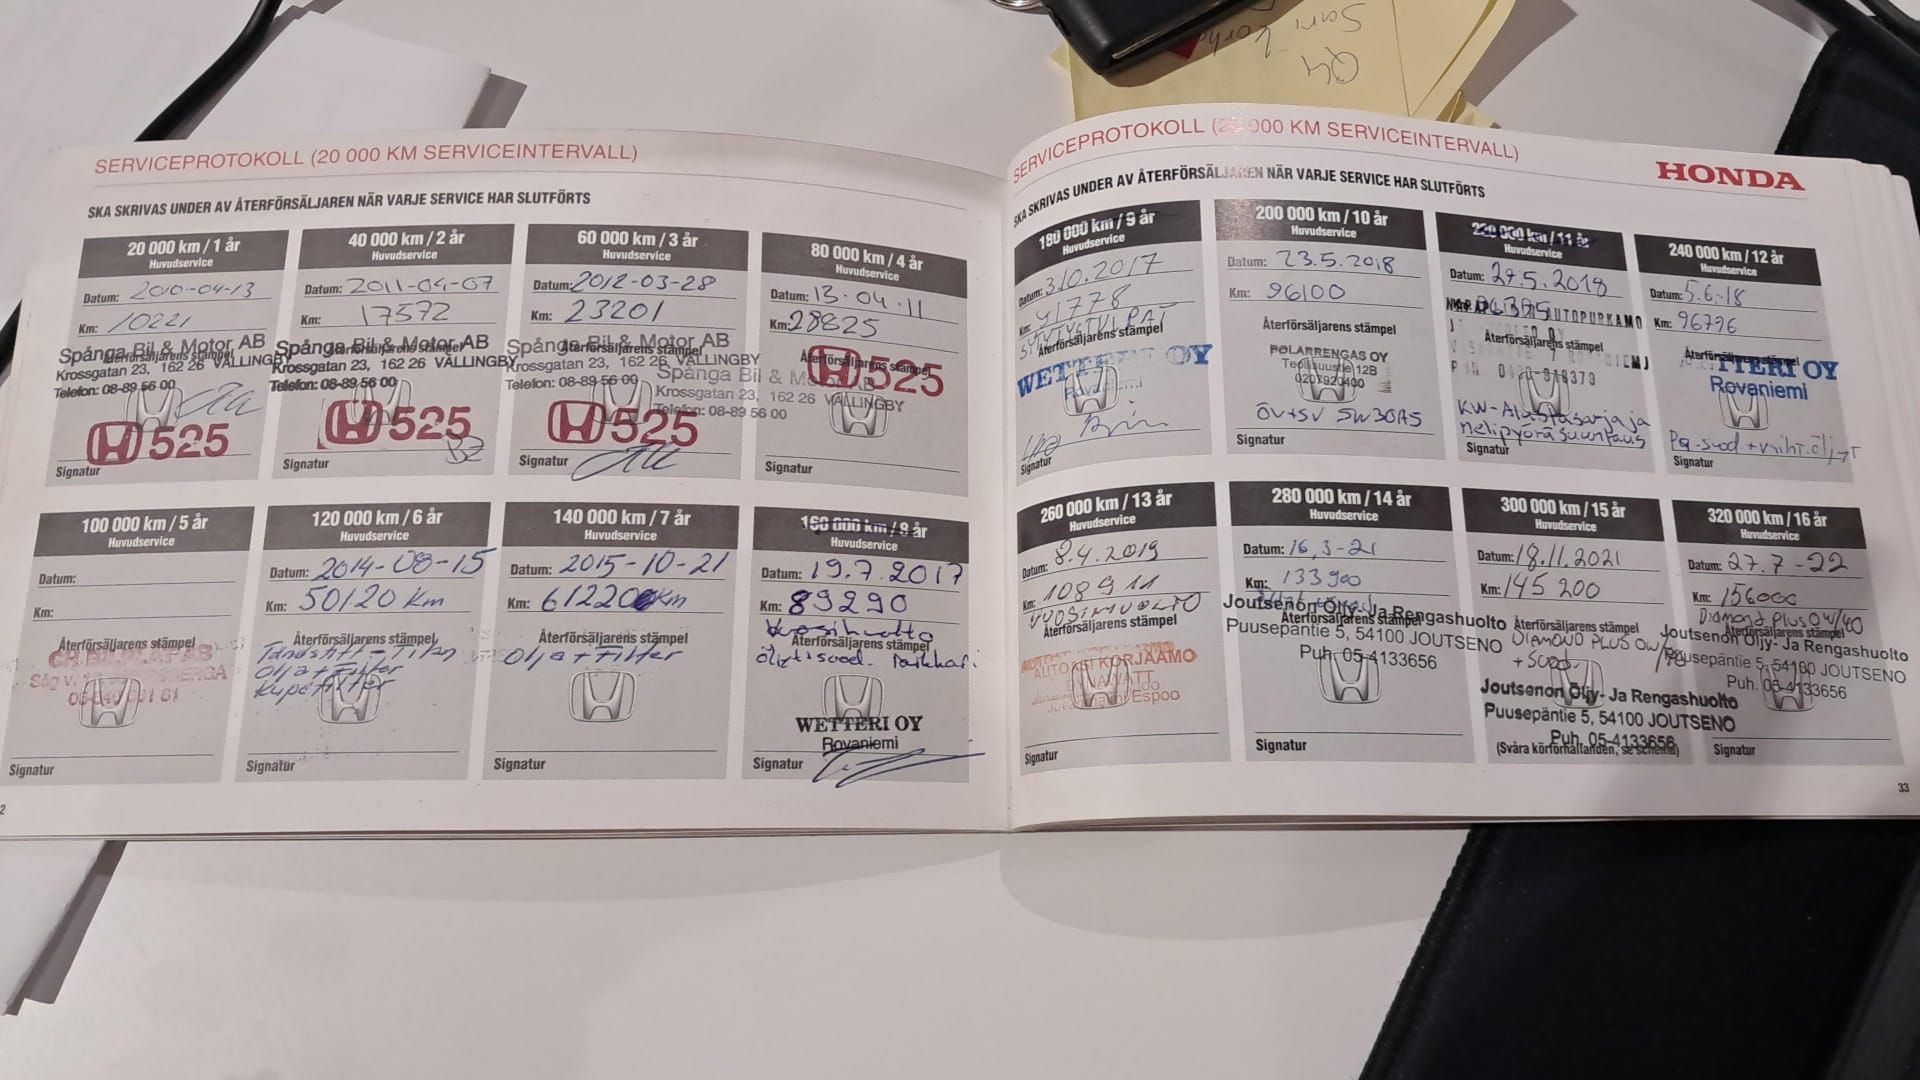 SERVICEPROTOKOLL (20 000 KM SERVICEINTERVALL)
SKA SKRIVAS UNDER AV ÅTERFÖRSÄLJAREN NÄR VARJE SERVICE HAR SLUTFÖRTS
20 000 km / 1 år
Huvudservice
Datum: 2010-04-13
Km: 10221
Återförsäljarens stämpel
Spånga Bil & Motor AB
Krossgatan 23, 162 26 VÄLLINGBY
Telefon: 08-89 56 00
525
Signatur
40 000 km / 2 år
Huvudservice
Datum: 2011-04-07
Km: 17572
Återförsäljarens stämpel
Spånga Bil & Motor AB
Krossgatan 23, 162 26 VÄLLINGBY
Telefon: 08-89 56 00
525
Signatur
60 000 km / 3 år
Huvudservice
Datum: 2012-03-28
Km: 23201
Återförsäljarens stämpel
Spånga Bil & Motor AB
Krossgatan 23, 162 26 VÄLLINGBY
Telefon: 08-89 56 00
525
Signatur
80 000 km / 4 år
Huvudservice
Datum: 13-04-11
Km: 28825
Återförsäljarens stämpel
525
Spånga Bil & Motor AB
Krossgatan 23, 162 26 VÄLLINGBY
Telefon: 08-89 56 00
Signatur
100 000 km / 5 år
Huvudservice
Datum:
Km:
Återförsäljarens stämpel
Signatur
120 000 km / 6 år
Huvudservice
Datum: 2014-08-15
Km: 50120 Km
Återförsäljarens stämpel
Tändstift - Titan
Olja + Filter
Kupefilter
Signatur
140 000 km / 7 år
Huvudservice
Datum: 2015-10-21
Km: 61220 Km
Återförsäljarens stämpel
Olja + Filter
Signatur
160 000 km / 8 år
Huvudservice
Datum: 19.7.2017
Km: 89290
Vuosihuolto
Återförsäljarens stämpel
WETTERI OY
Rovaniemi
Signatur
SERVICEPROTOKOLL (20 000 KM SERVICEINTERVALL)
HONDA
SKA SKRIVAS UNDER AV ÅTERFÖRSÄLJAREN NÄR VARJE SERVICE HAR SLUTFÖRTS
180 000 km / 9 år
Huvudservice
Datum: 3.10.2017
Km: 91778
SYTYTYSTULPAT
Återförsäljarens stämpel
WETTERI OY
Rovaniemi
Signatur
200 000 km / 10 år
Huvudservice
Datum: 23.5.2018
Km: 96100
Återförsäljarens stämpel
POLARRENGAS OY
Teollisuustie 12B
0207920400
ÖV+SV 5W30A5
Signatur
220 000 km / 11 år
Huvudservice
Datum: 27.5.2018
AUTOPURKAMO
Återförsäljarens stämpel
KW-Alustasarja ja
nelipyöräsuuntaus
Signatur
240 000 km / 12 år
Huvudservice
Datum: 5.6.-18
Km: 96796
Återförsäljarens stämpel
WETTERI OY
Rovaniemi
Signatur
260 000 km / 13 år
Huvudservice
Datum: 8.4.2019
Km: 108911
VUOSIHUOLTO
Återförsäljarens stämpel
KORJAAMO
Espoo
Signatur
280 000 km / 14 år
Huvudservice
Datum: 16.3-21
Km: 133900
Återförsäljarens stämpel
Joutsenon Öljy- Ja Rengashuolto
Puusepäntie 5, 54100 JOUTSENO
Puh. 05-4133656
Signatur
300 000 km / 15 år
Huvudservice
Datum: 18.11.2021
Km: 145 200
Återförsäljarens stämpel
DIAMOND PLUS 0W/40
+ Suod.
Joutsenon Öljy- Ja Rengashuolto
Puusepäntie 5, 54100 JOUTSENO
Puh. 05-4133656
(Svåra körförhållanden, se schema)
320 000 km / 16 år
Huvudservice
Datum: 27.7-22
Km: 156000
Diamond Plus 0W/40
Återförsäljarens stämpel
Joutsenon Öljy- Ja Rengashuolto
Puusepäntie 5, 54100 JOUTSENO
Puh. 05-4133656
Signatur
33